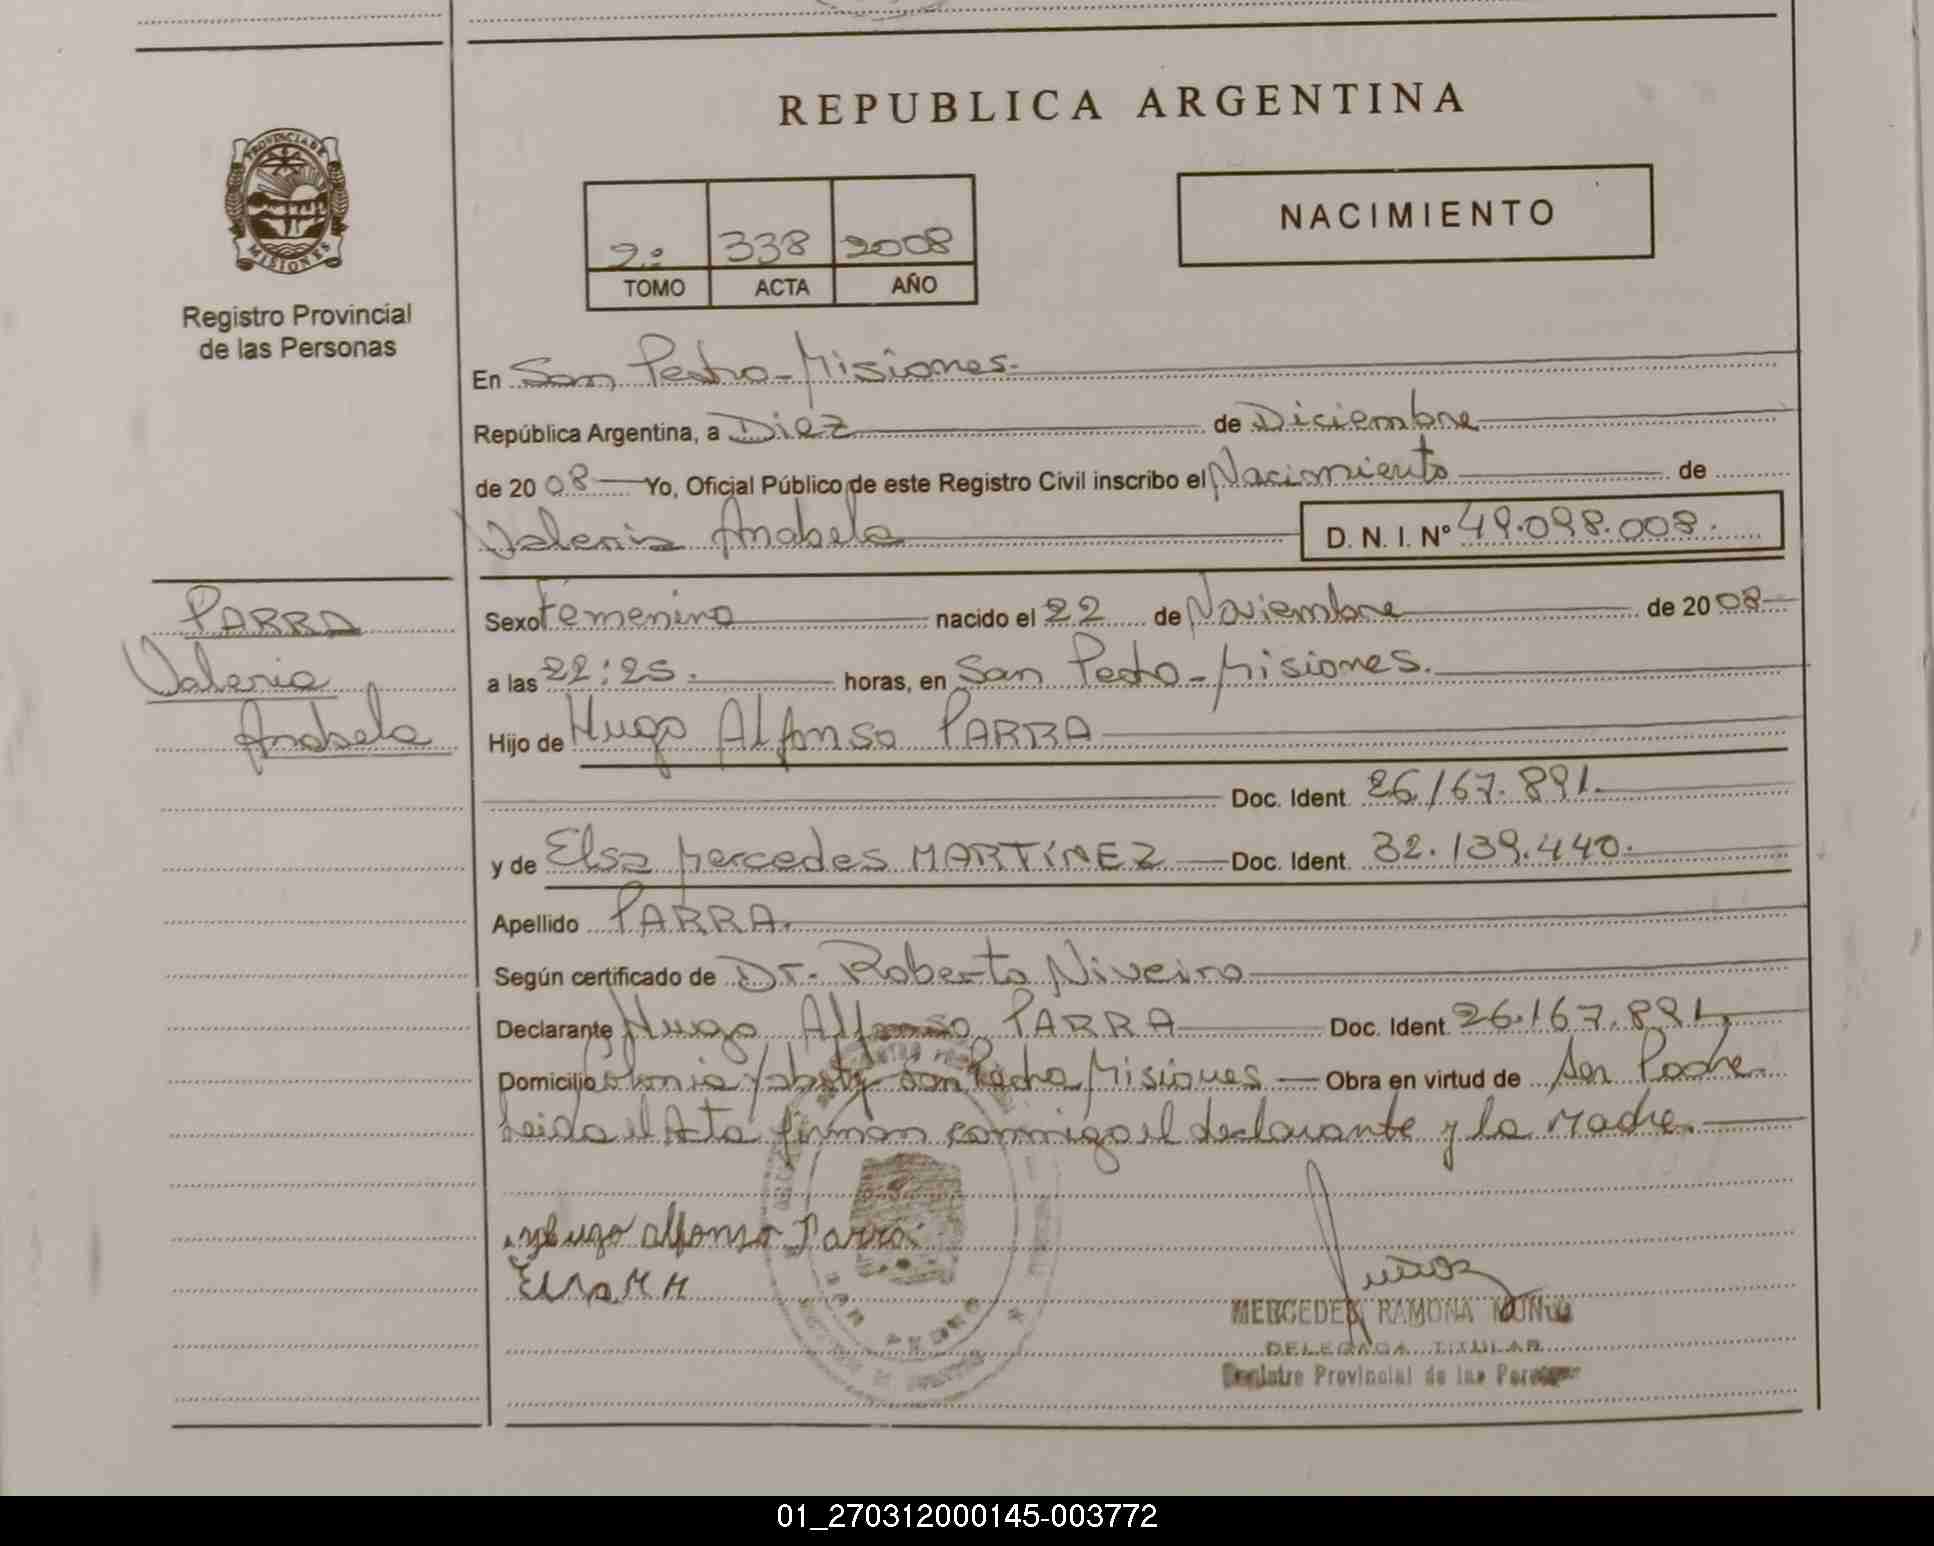 REPUBLICA ARGENTINA
PROVINCIA DE
MISIONES
Registro Provincial
de las Personas
2º 338 2008
TOMO ACTA AÑO
NACIMIENTO
En San Pedro - Misiones.
República Argentina, a Diez de Diciembre
de 2008 Yo, Oficial Público de este Registro Civil inscribo el Nacimiento de
Valeria Anabela D. N. I. Nº 49.098.008.
PARRA
Valeria
Anabela
Sexo Femenino nacido el 22 de Noviembre de 2008
a las 22:25. horas, en San Pedro - Misiones.
Hijo de Hugo Alfonso PARRA
Doc. Ident. 26.167.891.
y de Elsa Mercedes MARTÍNEZ Doc. Ident. 32.139.440.
Apellido PARRA.
Según certificado de Dr. Roberto Niveiro
Declarante Hugo Alfonso PARRA Doc. Ident. 26.167.891,
Domicilio Colonia San Pedro Misiones Obra en virtud de Ser Padre
Leida el Acta firman conmigo el declarante y la Madre.
Hugo Alfonso Parra
Elsa M M
Muñoz
MERCEDES RAMONA MUÑOZ
DELEGADA TITULAR
Registro Provincial de las Personas
SAN PEDRO
01_270312000145-003772